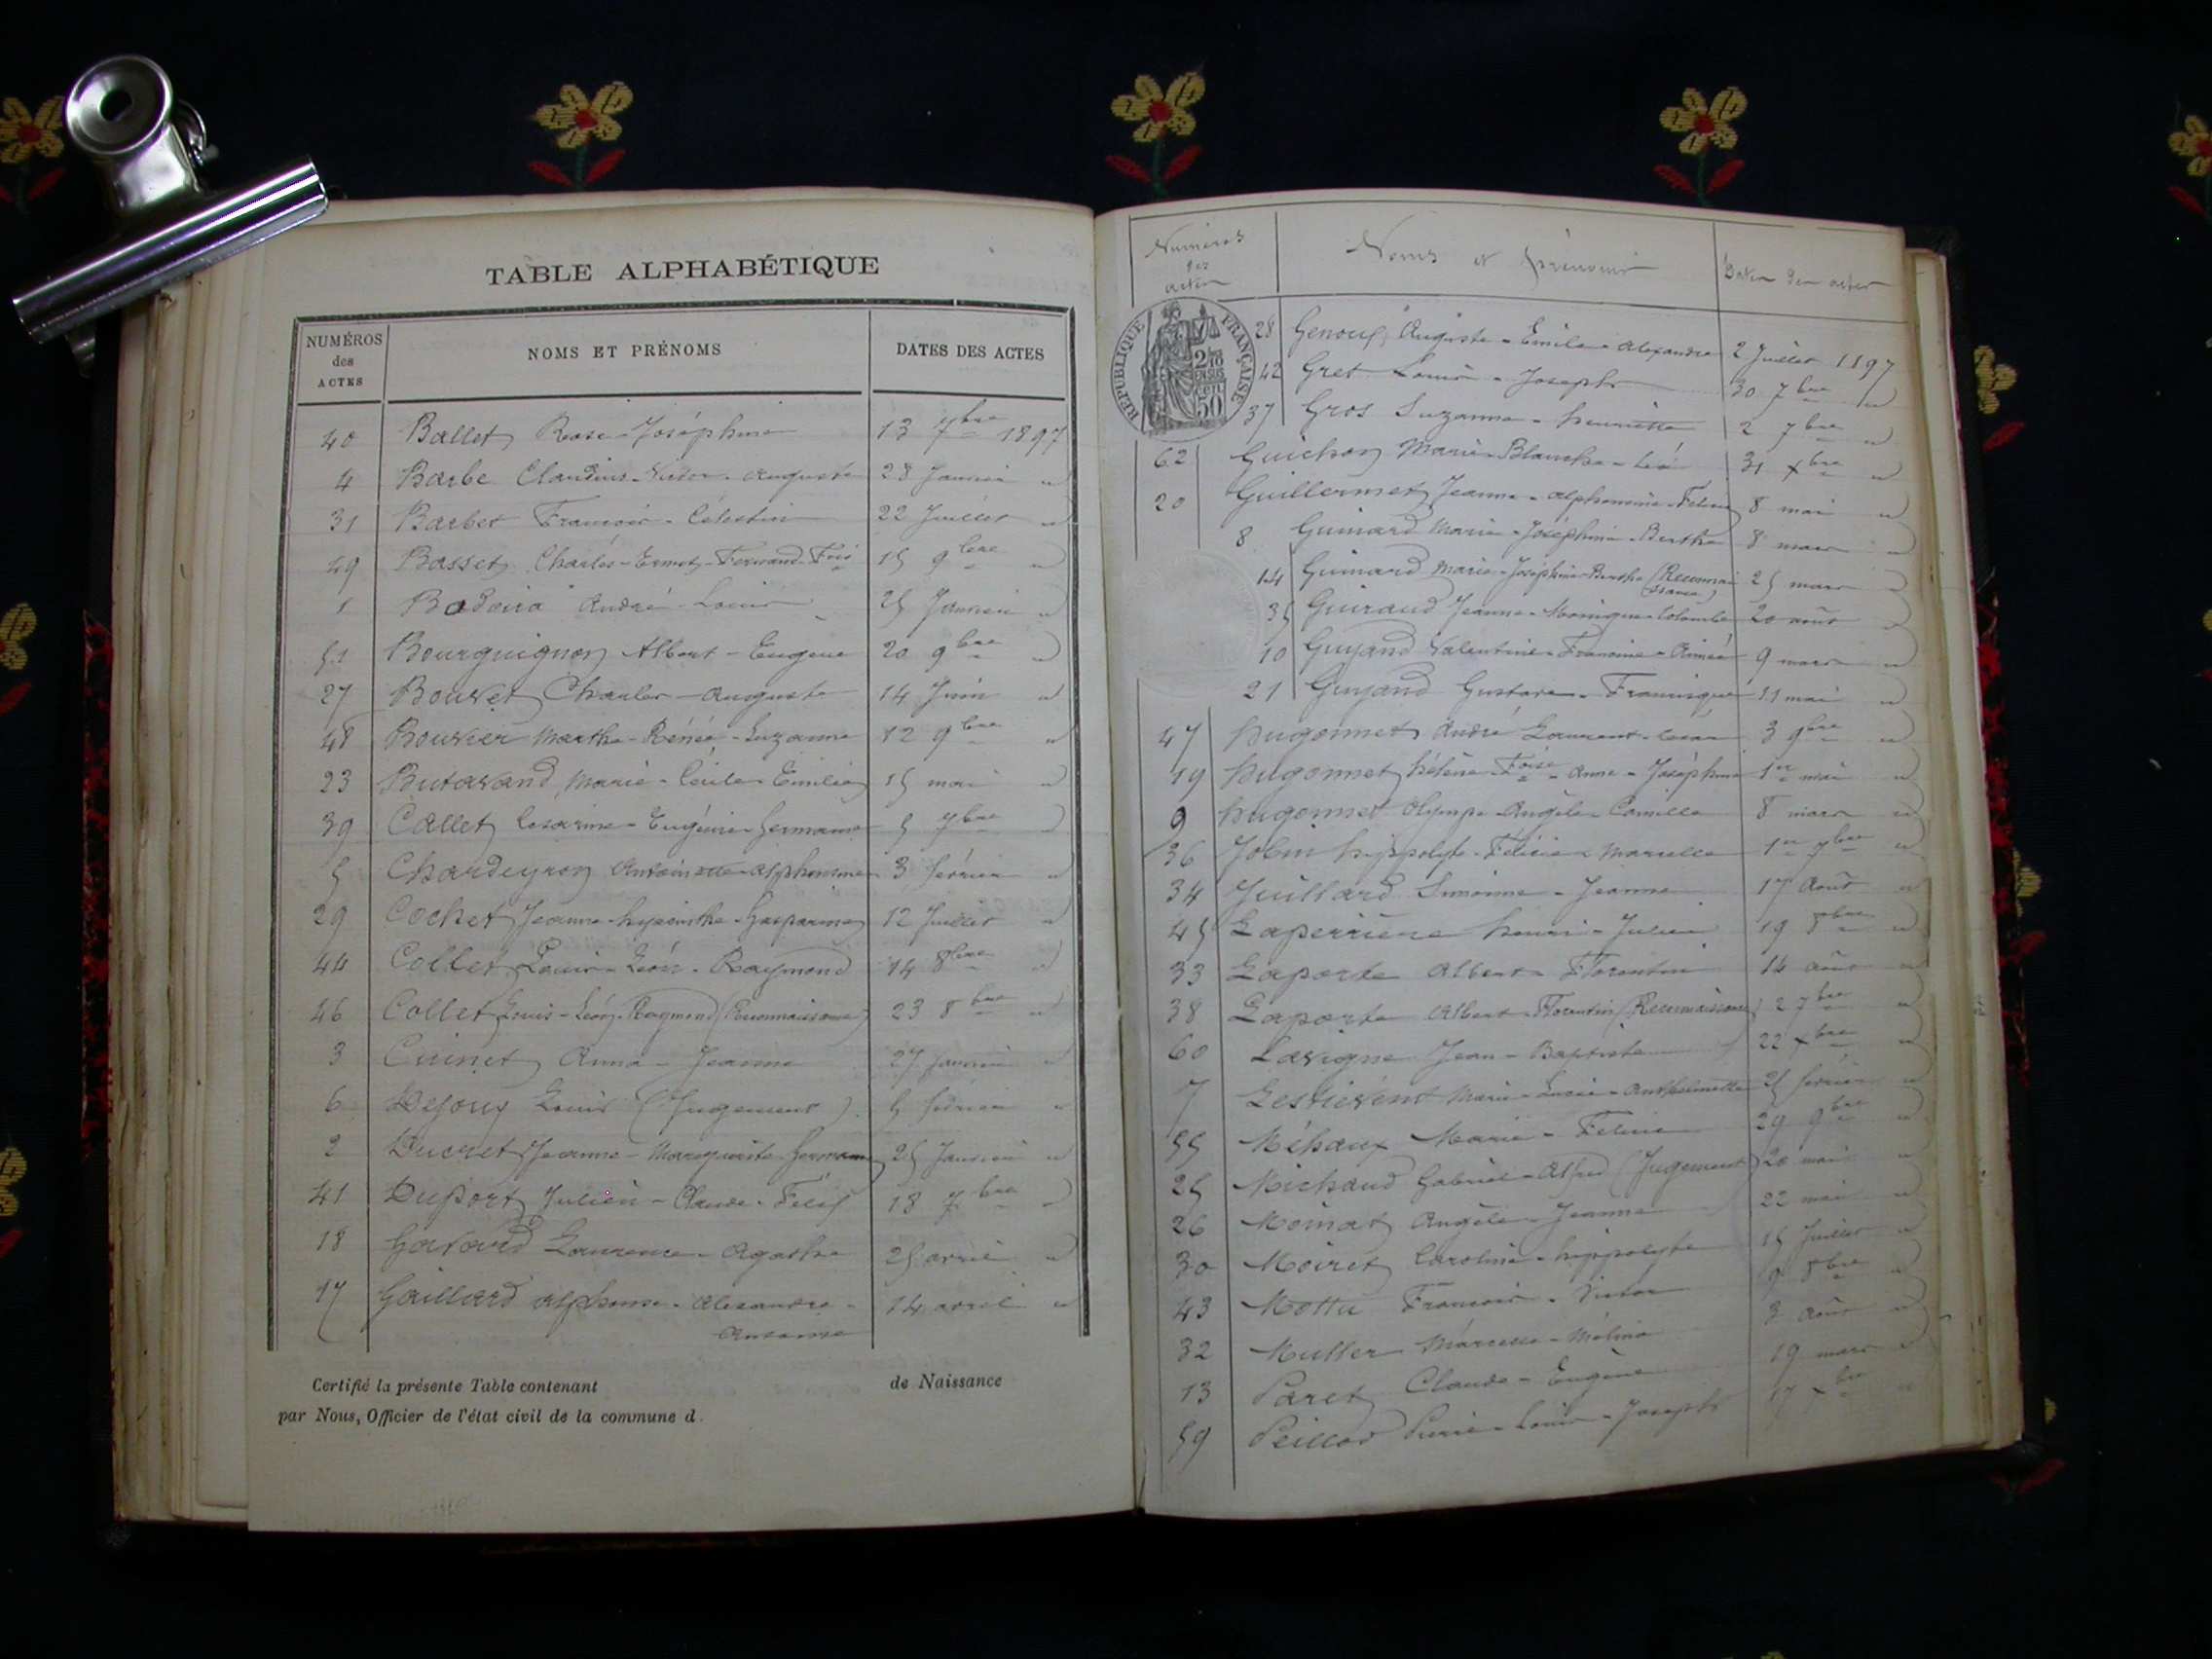 TABLE ALPHABÉTIQUE
NUMÉROS des ACTES NOMS ET PRÉNOMS DATES DES ACTES
40 Ballet Rose-Joséphine 13 7bre 1897
4 Barbe Claudius-Victor-Auguste 28 Janvier "
31 Barbet François-Célestin 22 Juillet "
49 Basset Charles-Ernest-Fernand-Fois 15 9bre "
1 André Louis 25 Janvier "
51 Bourguignon Albert-Eugène 20 9bre "
27 Bouvet Charles-Auguste 14 Juin "
48 Bouvier Marthe-Rénée-Suzanne 12 9bre "
23 Butavand Marie-Cécile-Emilie 15 mai "
39 Callet Césarine-Eugénie-Germaine 5 7bre "
5 Chardeyron Antoinette-Alphonsine 3 février "
29 Cochet Jeanne-hyacinthe-Gasparine 12 Juillet "
44 Collet Louis-Léon-Raymond 14 8bre "
46 Collet Louis-Léon-Raymond (Reconnaissance) 23 8bre "
3 Cuinet Anna-Jeanne 27 Janvier "
6 Dejoux Louis (Jugement) 5 février "
2 Ducret Jeanne-Marguerite-Germaine 25 Janvier "
41 Duport Julien-Claude-Félix 18 7bre "
18 Laurence-Agathe 25 avril "
17 Gaillard Alphonse-Alexandre- 14 avril "
Certifié la présente Table contenant de Naissance
par Nous, Officier de l'état civil de la commune d
Numéros des actes Noms et prénoms Dates des actes
RÉPUBLIQUE FRANÇAISE
2/10 EN SUS
50
28 Genoux Auguste-Emile-Alexandre 2 Juillet 1897
42 Gret Louis-Joseph 30 7bre "
37 Gros Suzanne-henriette 2 7bre "
62 Guichon Marie-Blanche-Léa 31 xbre "
20 Guillermet Jeanne-Alphonsine-Félicie 8 mai "
8 Guinard Marie-Joséphine-Berthe 8 mars "
14 Guinard Marie-Joséphine-Berthe (Reconnaissance) 25 mars "
35 Guiraud Jeanne-Monique-Colombe 20 août "
10 Guyand Valentine-Francine-Aimée 9 mars "
21 Guyand Gustave-Francisque 11 mai "
47 hugonnet André Laurent-César 3 9bre "
19 hugonnet hélène-Foise-Anne-Joséphine 1er mai "
9 hugonnet Olympe-Angèle-Camille 8 mars "
36 Jobin hippolyte-Félicien Marcelle 1er 7bre "
34 Juillard Simonne-Jeanne 17 Août "
45 Laperrière henri-Julien 19 8bre "
33 Laporte Albert-Florentin 14 août "
38 Laporte Albert-Florentin (Reconnaissance) 2 7bre "
60 Lavigne Jean-Baptiste 22 xbre "
7 Lestievent Marie-Lucie-Anthelmette 25 février "
55 Méhaux Marie-Félicie 29 9bre "
25 Michaud Gabriel-Alfred (Jugement) 20 mai "
26 Moinat Angèle-Jeanne 22 mai "
30 Moiret Caroline-hippolyte 15 Juillet "
43 Mottu François-Victor 9 8bre "
32 Muller Marcelle-Mélina 3 Août "
13 Paret Claude-Eugène 19 mars "
59 Peillod Pierre-Louis-Joseph 17 xbre "